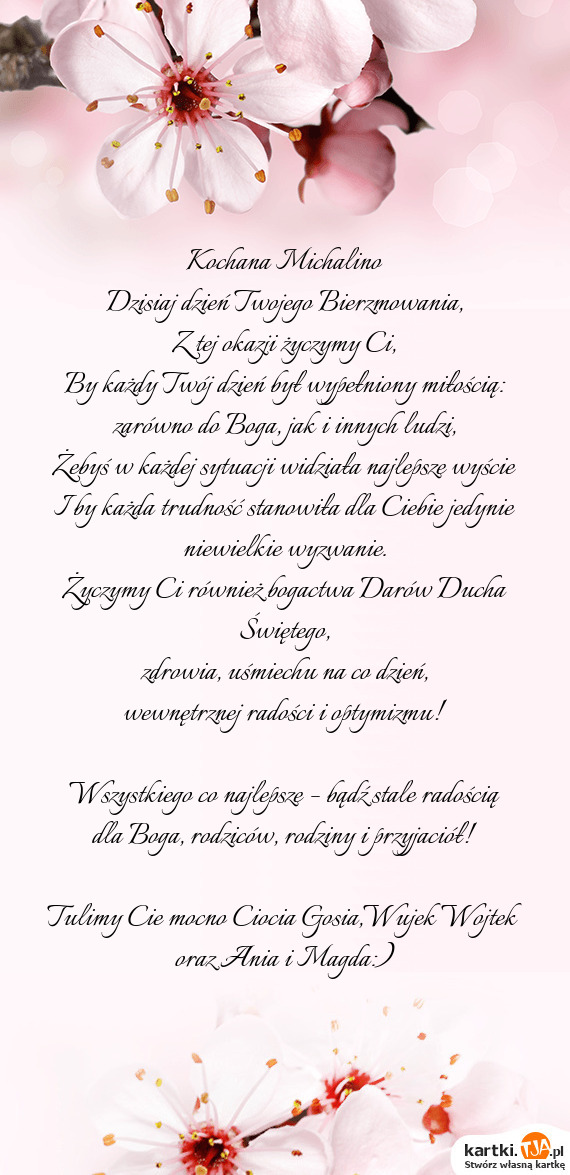 Kochana Michalino
Dzisiaj dzień Twojego Bierzmowania,
Z tej okazji życzymy Ci,
By każdy Twój dzień był wypełniony miłością:
zarówno do Boga, jak i innych ludzi,
Żebyś w każdej sytuacji widziała najlepszę wyście
I by każda trudność stanowiła dla Ciebie jedynie
niewielkie wyzwanie.
Życzymy Ci również bogactwa Darów Ducha
Świętego,
zdrowia, uśmiechu na co dzień,
wewnętrznej radości i optymizmu!
Wszystkiego co najlepszę - bądź stale radością
dla Boga, rodziców, rodziny i przyjaciół!
Tulimy Cie mocno Ciocia Gosia,Wujek Wojtek
oraz Ania i Magda:)
kartki.TJA.pl
Stwórz własną kartkę